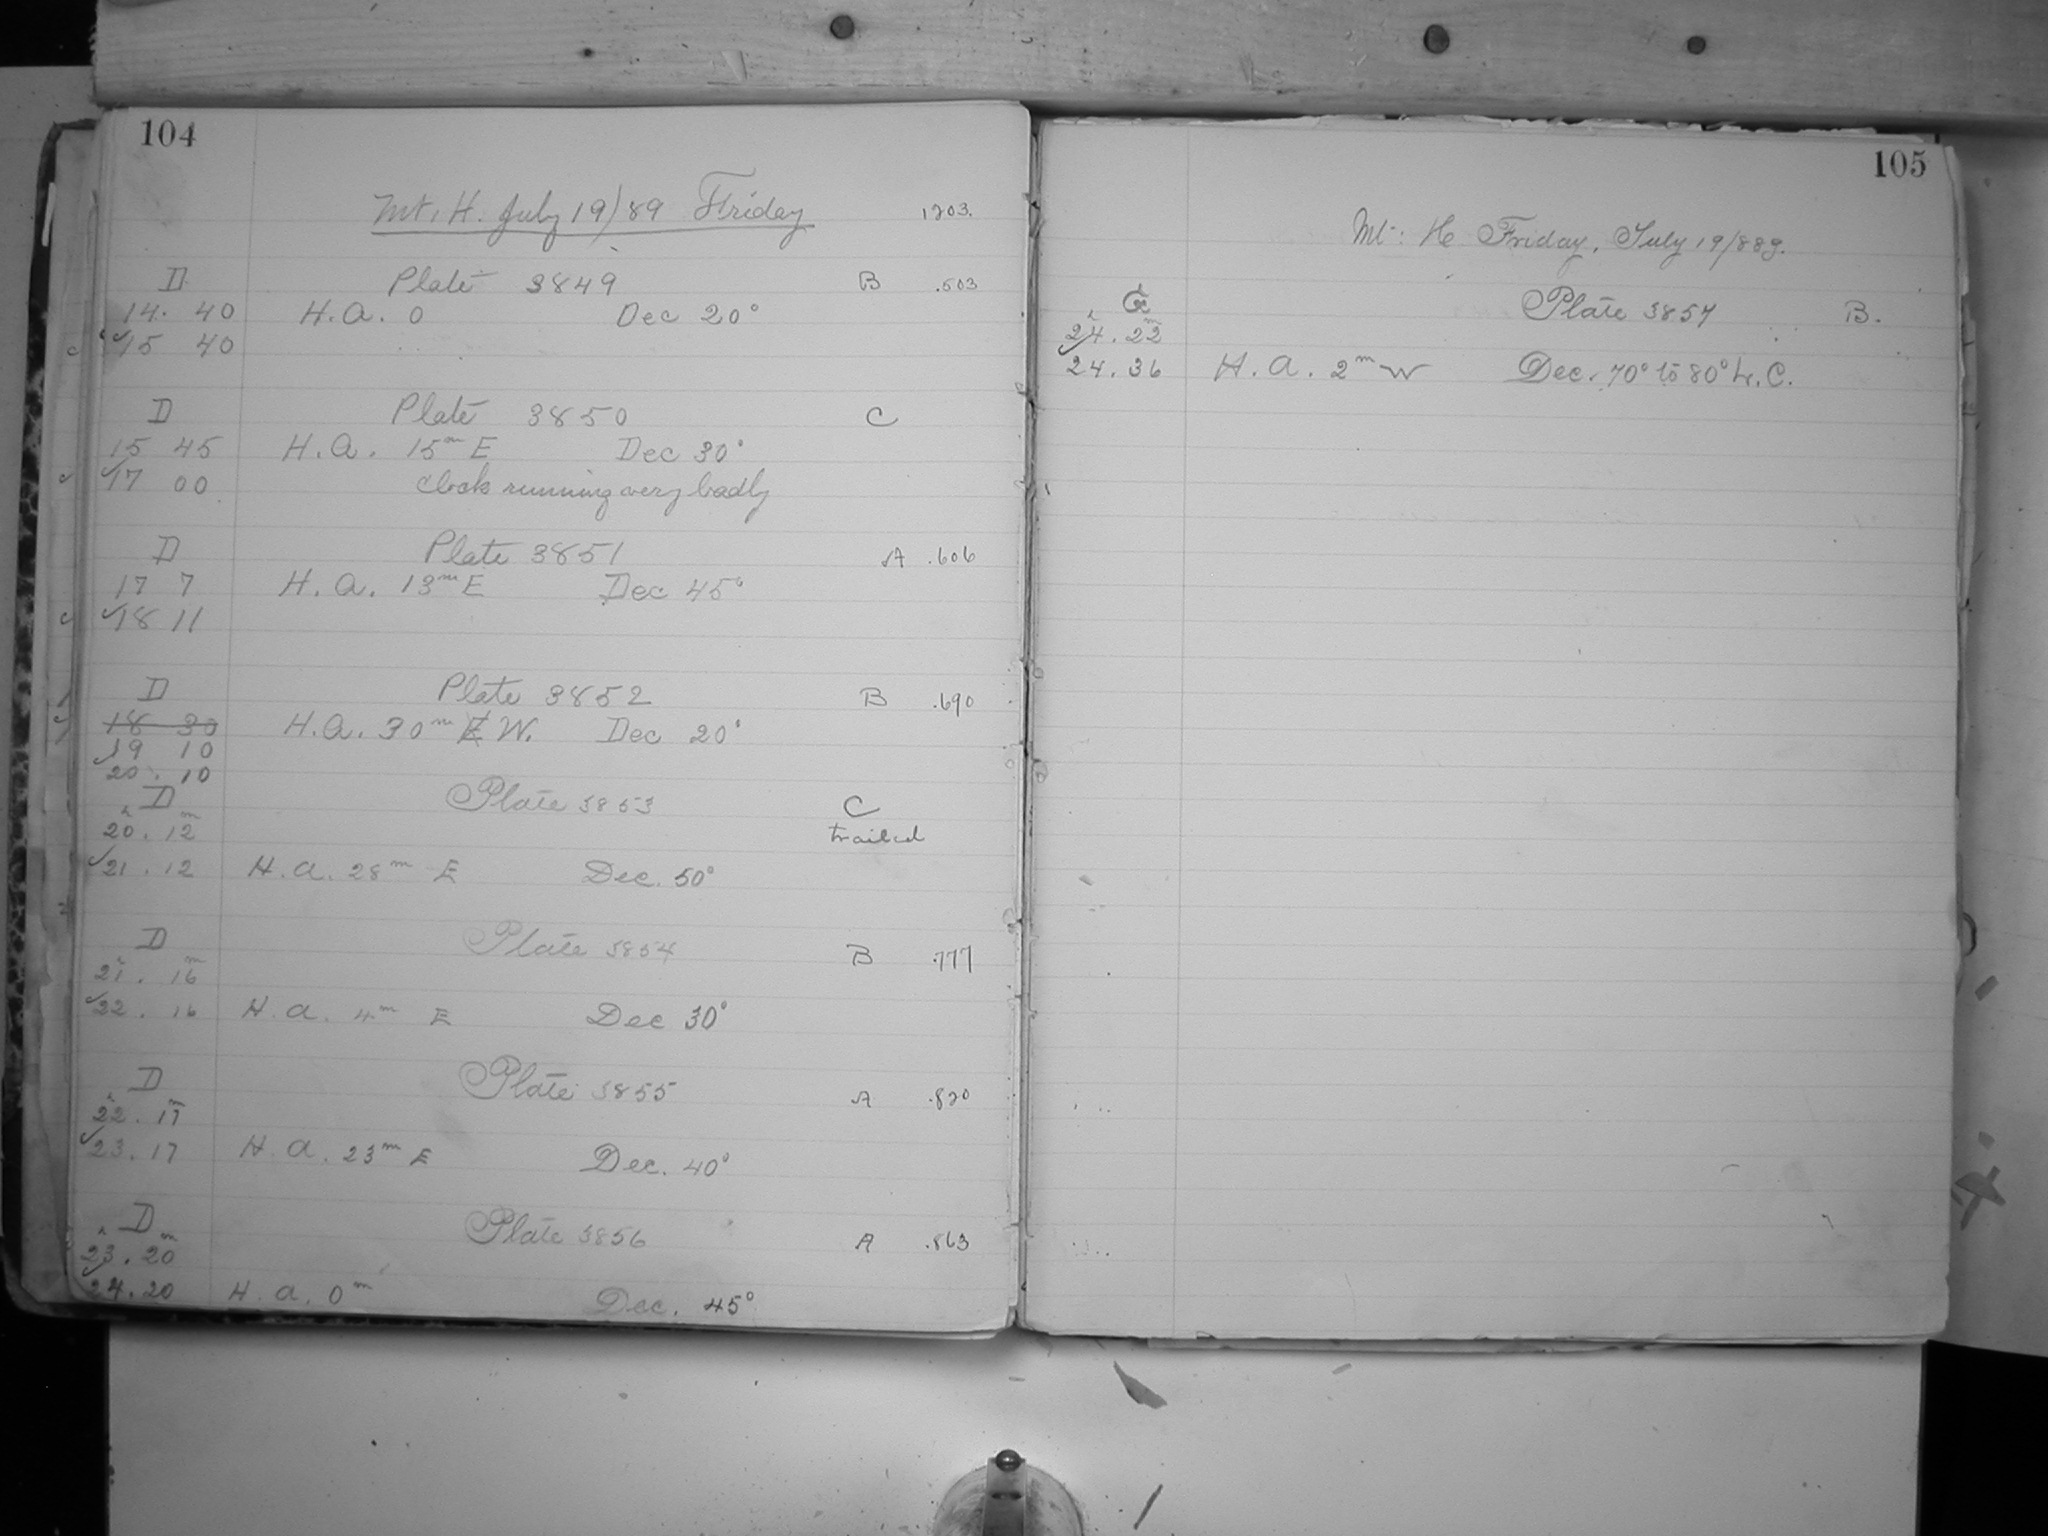 104
Mt. H. July 19/89 Friday 1203.
D Plate 3849 B .503
14. 40 H.A. 0 Dec 20°
15 40
D Plate 3850 C
15 45 H.A. 15m E Dec 30°
17 00 clock running very badly
D Plate 3851 A .606
17 7 H.A. 13m E Dec 45°
18 11
D Plate 3852 B .690
18 30 H.A. 30m E W. Dec 20°
19 10
20. 10
D Plate 3853 C
20h. 12m trailed
21. 12 H.A. 28m E Dec. 50°
D Plate 3854 B .777
21h. 16m
22. 16 H.A. 4m E Dec 30°
D Plate 3855 A .820
22h. 17m
23. 17 H.A. 23m E Dec. 40°
D Plate 3856 A .863
23h. 20m
24. 20 H.A. 0m Dec. 45°
105
Mt. H Friday, July 19/889.
Plate 3857 B.
24h. 22m
24. 36 H.A. 2m W Dec. 70° to 80° L.C.